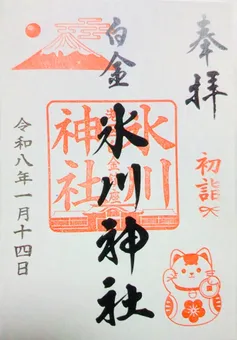 奉拝
初詣
白金
氷川神社
氷川
神社
令和八年一月十四日